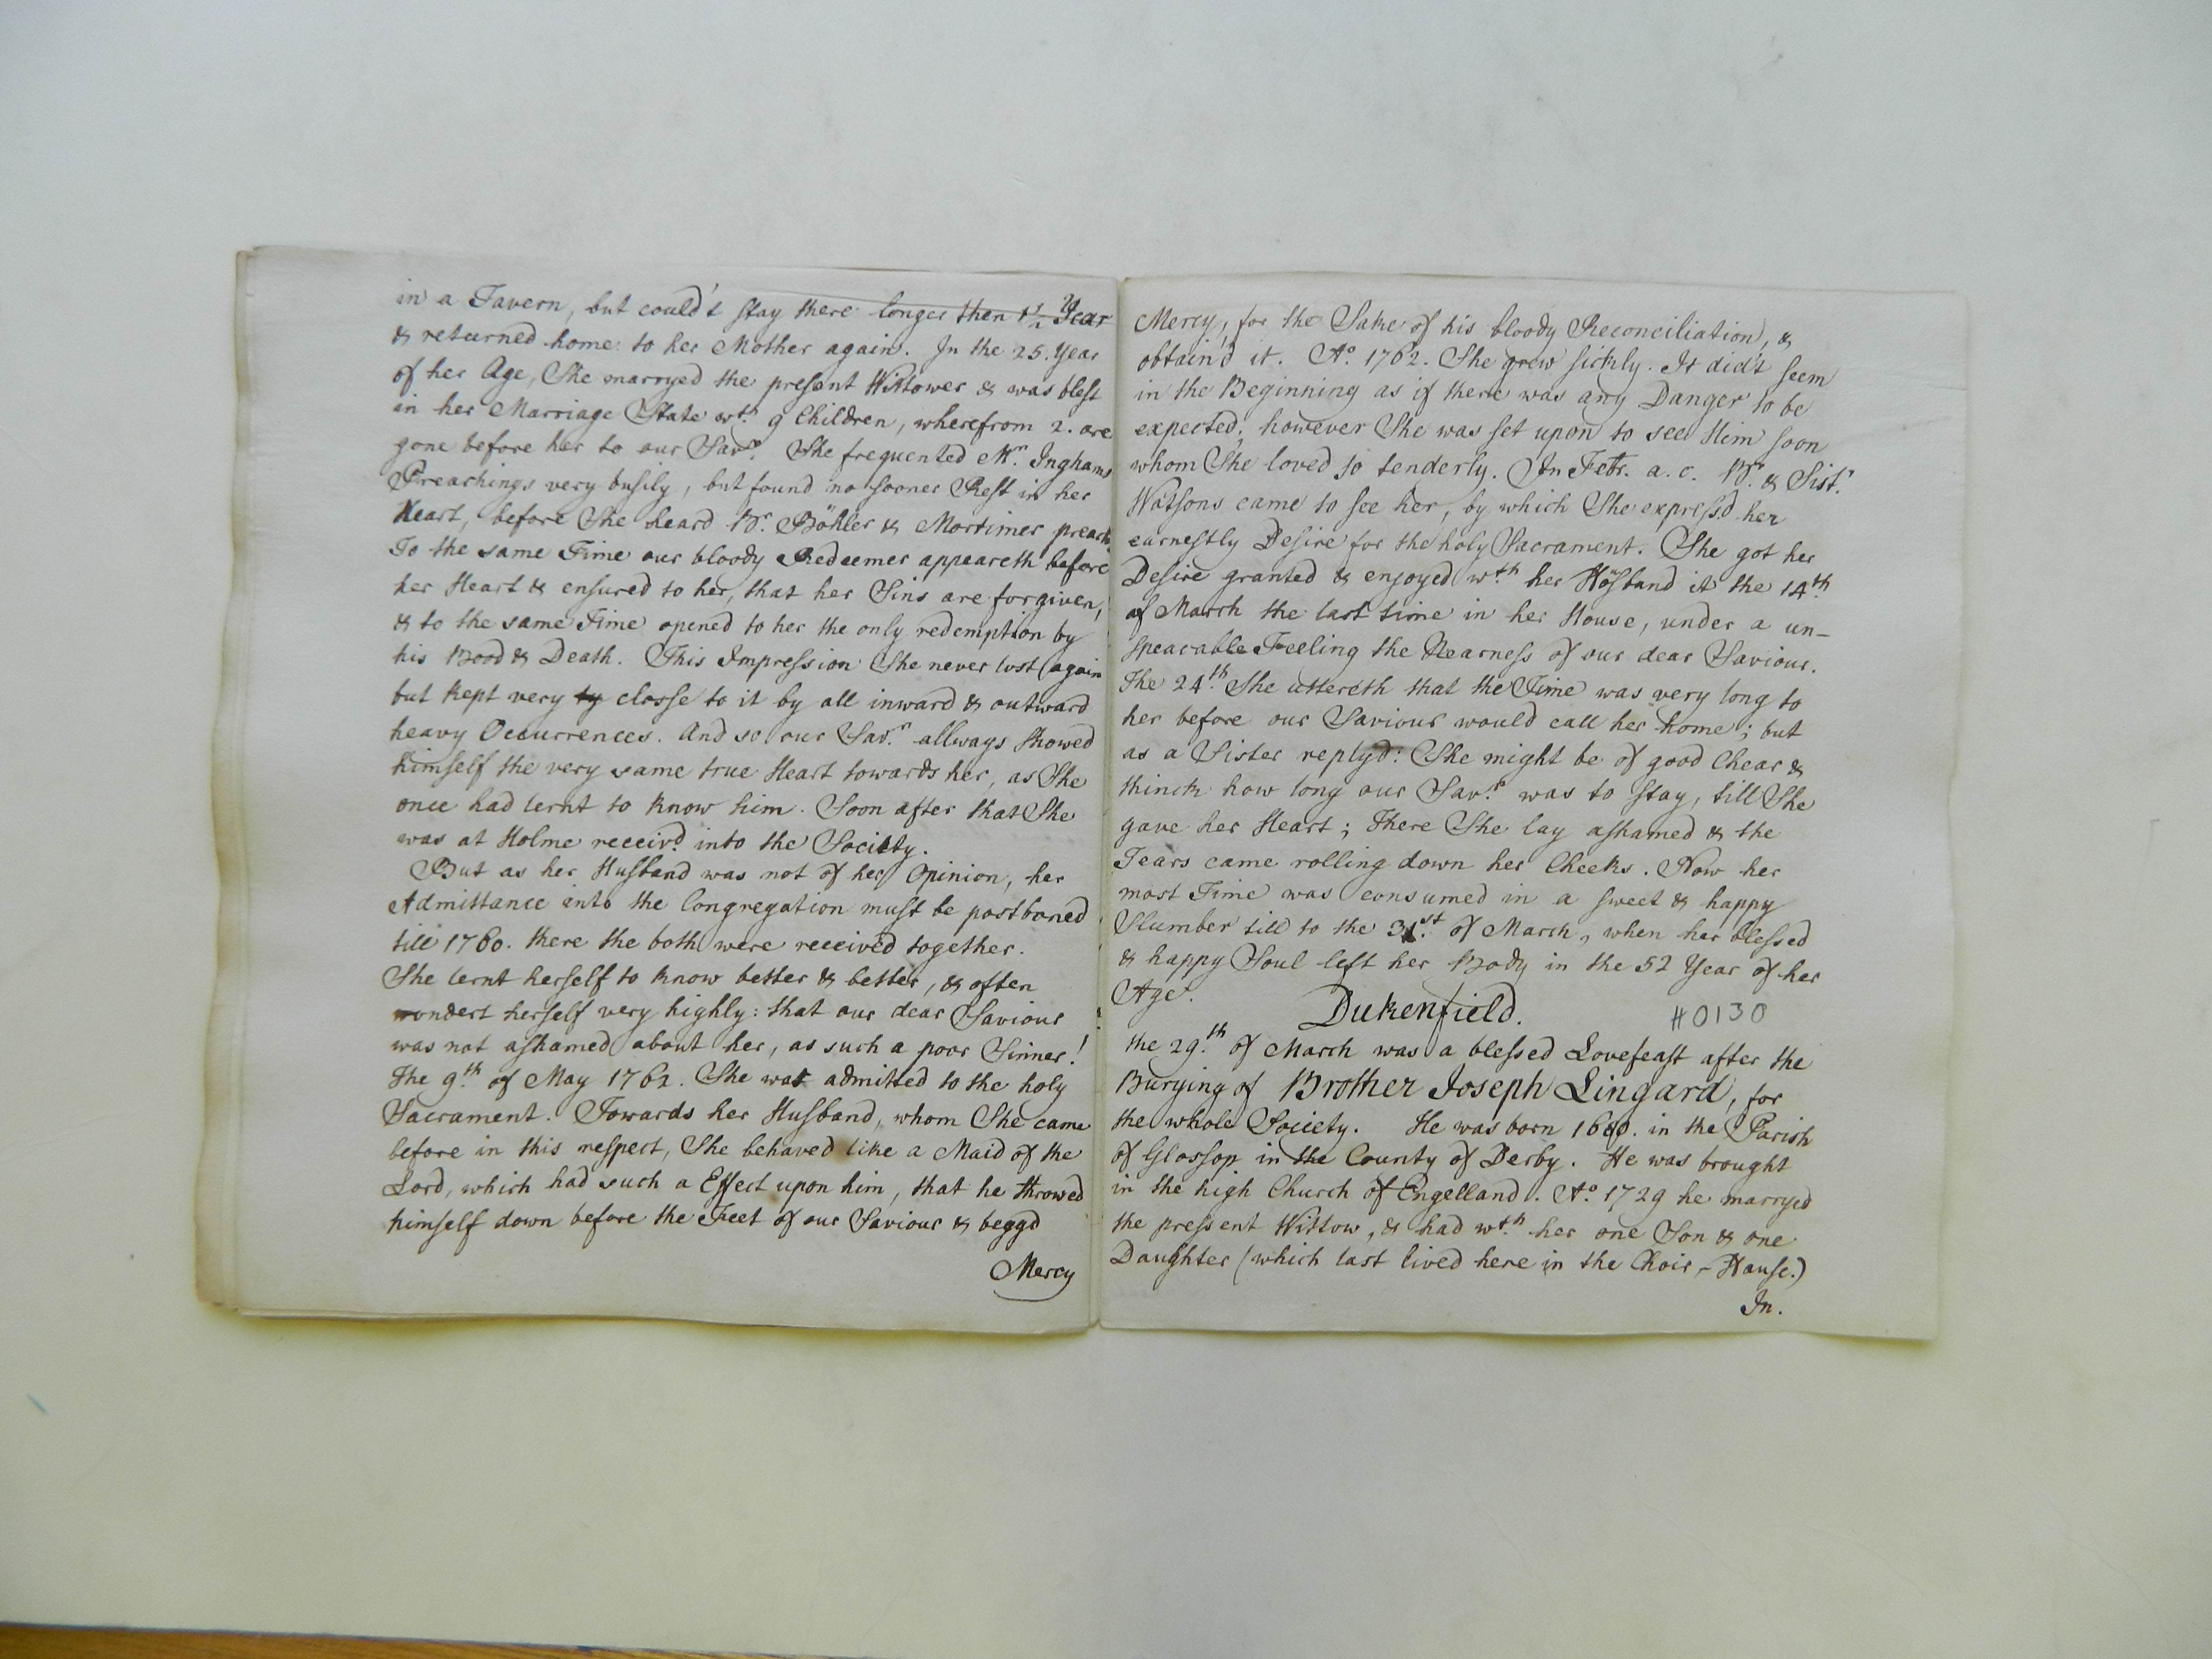 in a Tavern, but could't stay there longer then 1½ Year
& returned home to her Mother again. In the 25. Year
of her Age, She marryed the present Wittower & was blest
in her Marriage State wth. 9 Children, wherefrom 2. are
gone before her to our Savr. She frequented Mr. Inghams
Preachings very busily, but found no sooner Rest in her
Heart, before She heard Br. Böhler & Mortimer preach.
To the same Time our bloody Redeemer appeareth before
her Heart & ensured to her, that her Sins are forgiven,
& to the same Time opened to her the only redemption by
his Bood & Death. This Impression She never lost again
but kept very closse to it by all inward & outward
heavy Occurrences. And so our Savr. allways showed
himself the very same true Heart towards her, as She
once had lernt to know him. Soon after that She
was at Holme receivd into the Society.
But as her Husband was not of her Opinion, her
Admittance into the Congregation must be postboned
till 1760. there the both were received together.
She lernt herself to know better & better, & often
wondert herself very highly: that our dear Saviour
was not ashamed about her, as such a poor Sinner!
The 9th of May 1762. She was admitted to the holy
Sacrament. Towards her Husband, whom She came
before in this respect, She behaved like a Maid of the
Lord, which had such a Effect upon him, that he throwed
himself down before the Feet of our Saviour & beggd
Mercy
Mercy, for the Sake of his bloody Reconciliation, &
obtain'd it. Ao. 1762. She grew sickly. It did't seem
in the Beginning as if there was any Danger to be
expected; however She was set upon to see Him soon
whom She loved so tenderly. In Febr. a. c. Br. & Sistr.
Watsons came to see her, by which She expressd her
earnestly Desire for the holy Sacrament. She got her
Desire granted & enjoyed wth. her Husband it the 14th.
of March the last time in her House, under a un-
speacable Feeling the Nearness of our dear Saviour.
The 24th. She uttereth that the Time was very long to
her before our Saviour would call her home; but
as a Sister replyd: She might be of good Chear &
thinck how long our Savr. was to stay, till She
gave her Heart; There She lay ashamed & the
Tears came rolling down her Cheeks. Now her
most Time was consumed in a sweet & happy
Slumber till to the 31st. of March, when her blessed
& happy Soul left her Body in the 52 Year of her
Age.
Dukenfield. #0130
the 29th. of March was a blessed Lovefeast after the
Burying of Brother Joseph Lingard, for
the whole Society. He was born in the Parish
of Glossop in the County of Derby. He was brought
in the high Church of Engelland. Ao. 1729 he marryed
the present Wittow, & had wth. her one Son & one
Daughter (which last lived here in the Choir-House.)
In.